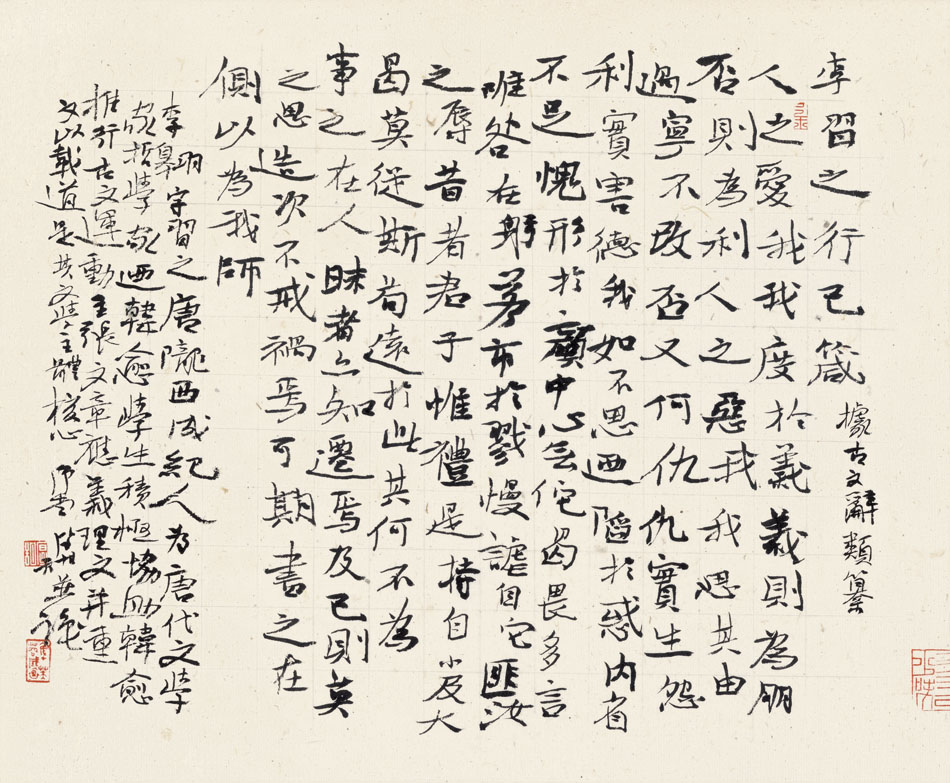 李習之行己箴
據古文辭類纂
人之愛我我度於義義則為朋
否則為利人之惡我我思其由
過寧不改否又何仇仇實生怨
利實害德我如不思迺陷於惑內省
不足愧形於顏中心無佗曷畏多言
唯咎在躬若市於戮慢謔自它匪汝
之辱昔者君子惟禮是持自小及大
曷莫從斯苟遠於此其何不為
事之在人昧者亦知遷焉及己則莫
之思造次不戒禍焉可期書之在
側以為我師
李翱字習之唐隴西成紀人為唐代文學
家哲學家迺韓愈學生積極協助韓愈
推行古文運動主張文章應義理文并重
文以載道是其文學主體核心